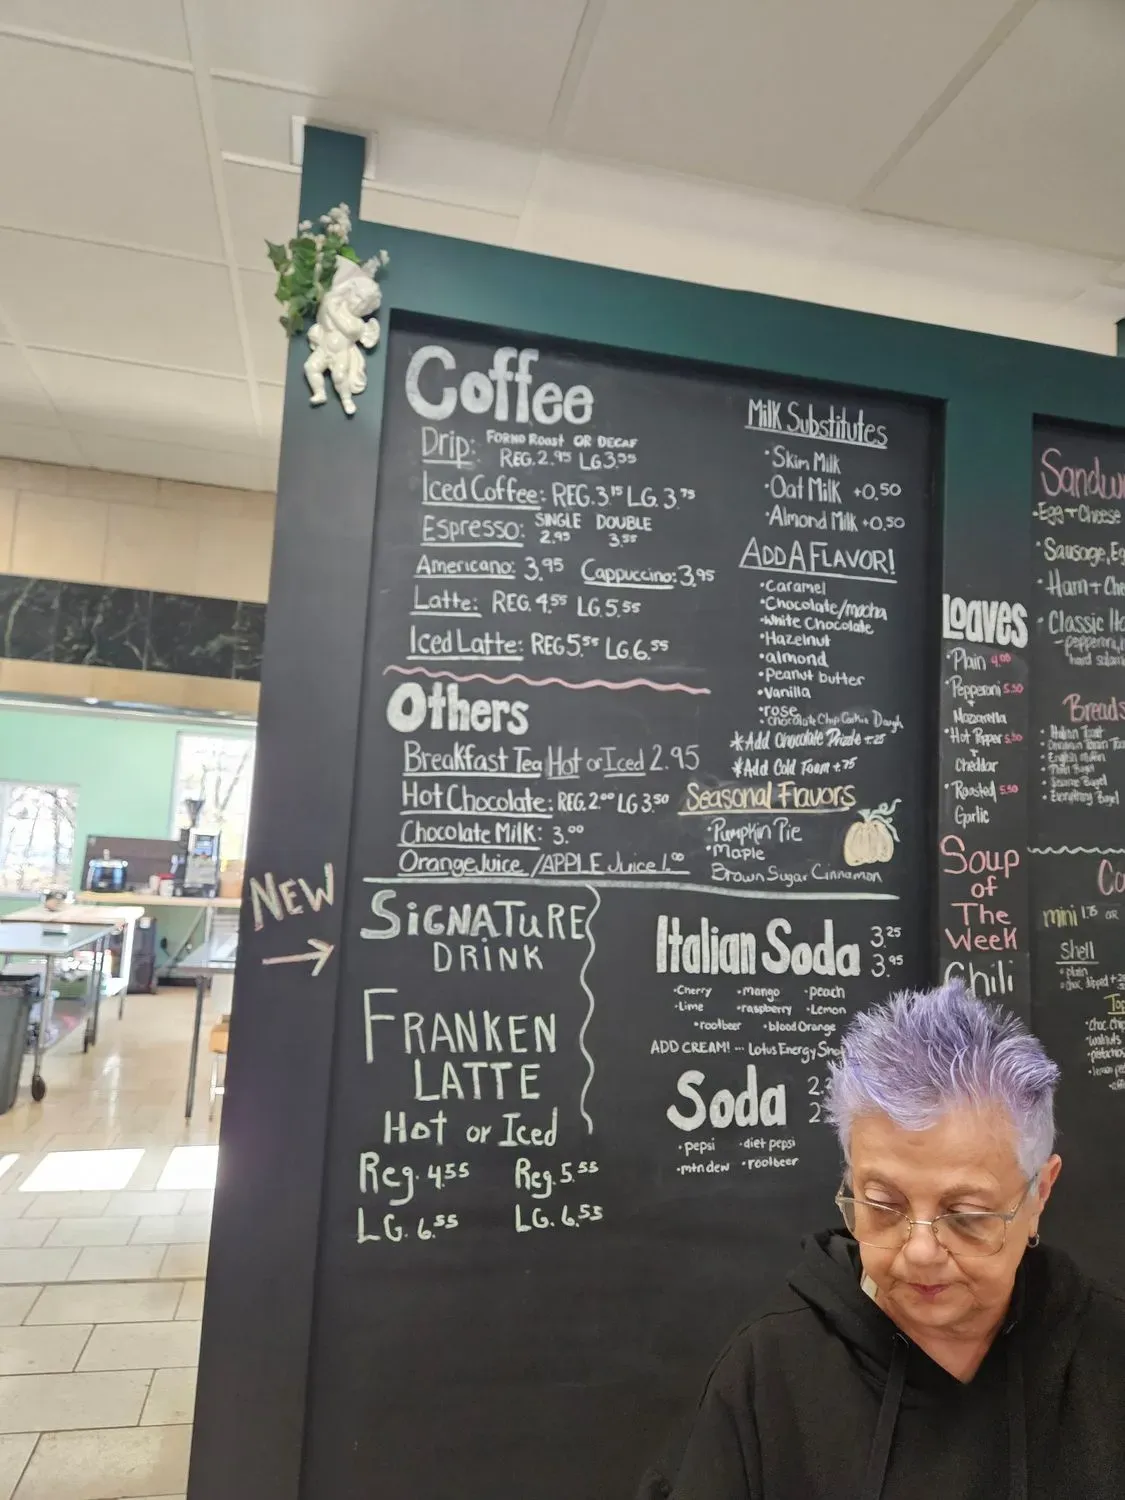 Coffee
Drip: FORNO Roast OR DECAF
REG. 2.95 LG 3.55
Iced Coffee: REG. 3.15 LG. 3.75
Espresso: SINGLE DOUBLE
2.95 3.55
Americano: 3.95 Cappuccino: 3.95
Latte: REG. 4.55 LG. 5.55
Iced Latte: REG 5.55 LG. 6.55
Others
Breakfast Tea Hot or Iced 2.95
Hot Chocolate: REG. 2.00 LG 3.50
Chocolate Milk: 3.00
Orange Juice / APPLE Juice 1.00
Milk Substitutes
• Skim Milk
• Oat Milk +0.50
• Almond Milk +0.50
ADD A FLAVOR!
• Caramel
• Chocolate/mocha
• White Chocolate
• Hazelnut
• almond
• Peanut butter
• Vanilla
• rose
• Chocolate Chip Cookie Dough
* Add Chocolate Drizzle +.25
* Add Cold Foam +.75
Seasonal Flavors
• Pumpkin Pie
• Maple
Brown Sugar Cinnamon
NEW
SIGNATURE
DRINK
FRANKEN
LATTE
Hot or Iced
Reg. 4.55 Reg. 5.55
LG. 6.55 LG. 6.55
Italian Soda 3.25
3.95
• Cherry • mango • peach
• Lime • raspberry • Lemon
• rootbeer • blood Orange
ADD CREAM! -- Lotus Energy
Soda
• pepsi • diet pepsi
• mtn dew • rootbeer
Loaves
• Plain 4.00
• Pepperoni 5.50
+
Mozzarella
• Hot Pepper 5.50
+
Cheddar
• Roasted 5.50
Garlic
Soup
of
The
Week
Chili
• Egg + Cheese
• Sausage,
• Ham +
• Classic
- pepperoni,
hard
Breads
• Italian Toast
• English Muffin
• Plain Bagel
• Sesame Bagel
• Everything Bagel
mini 1.75 OR
Shell
• plain
• choc. dipped
• walnuts